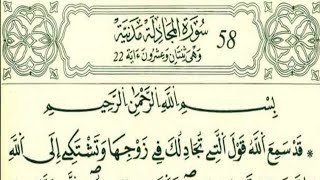 سُورَةُ الْمُجَادِلَةِ مَدَنِيَّةٌ 58
وَهْيَ ثِنْتَانِ وَعِشْرُونَ ءَايَةً 22
بِسْمِ اللَّهِ الرَّحْمَٰنِ الرَّحِيمِ
* قَدْ سَمِعَ اَللَّهُ قَوْلَ اَلتِے تُجَادِلُكَ فِے زَوْجِهَا وَتَشْتَكِےٓ إِلَى اَللَّهِ